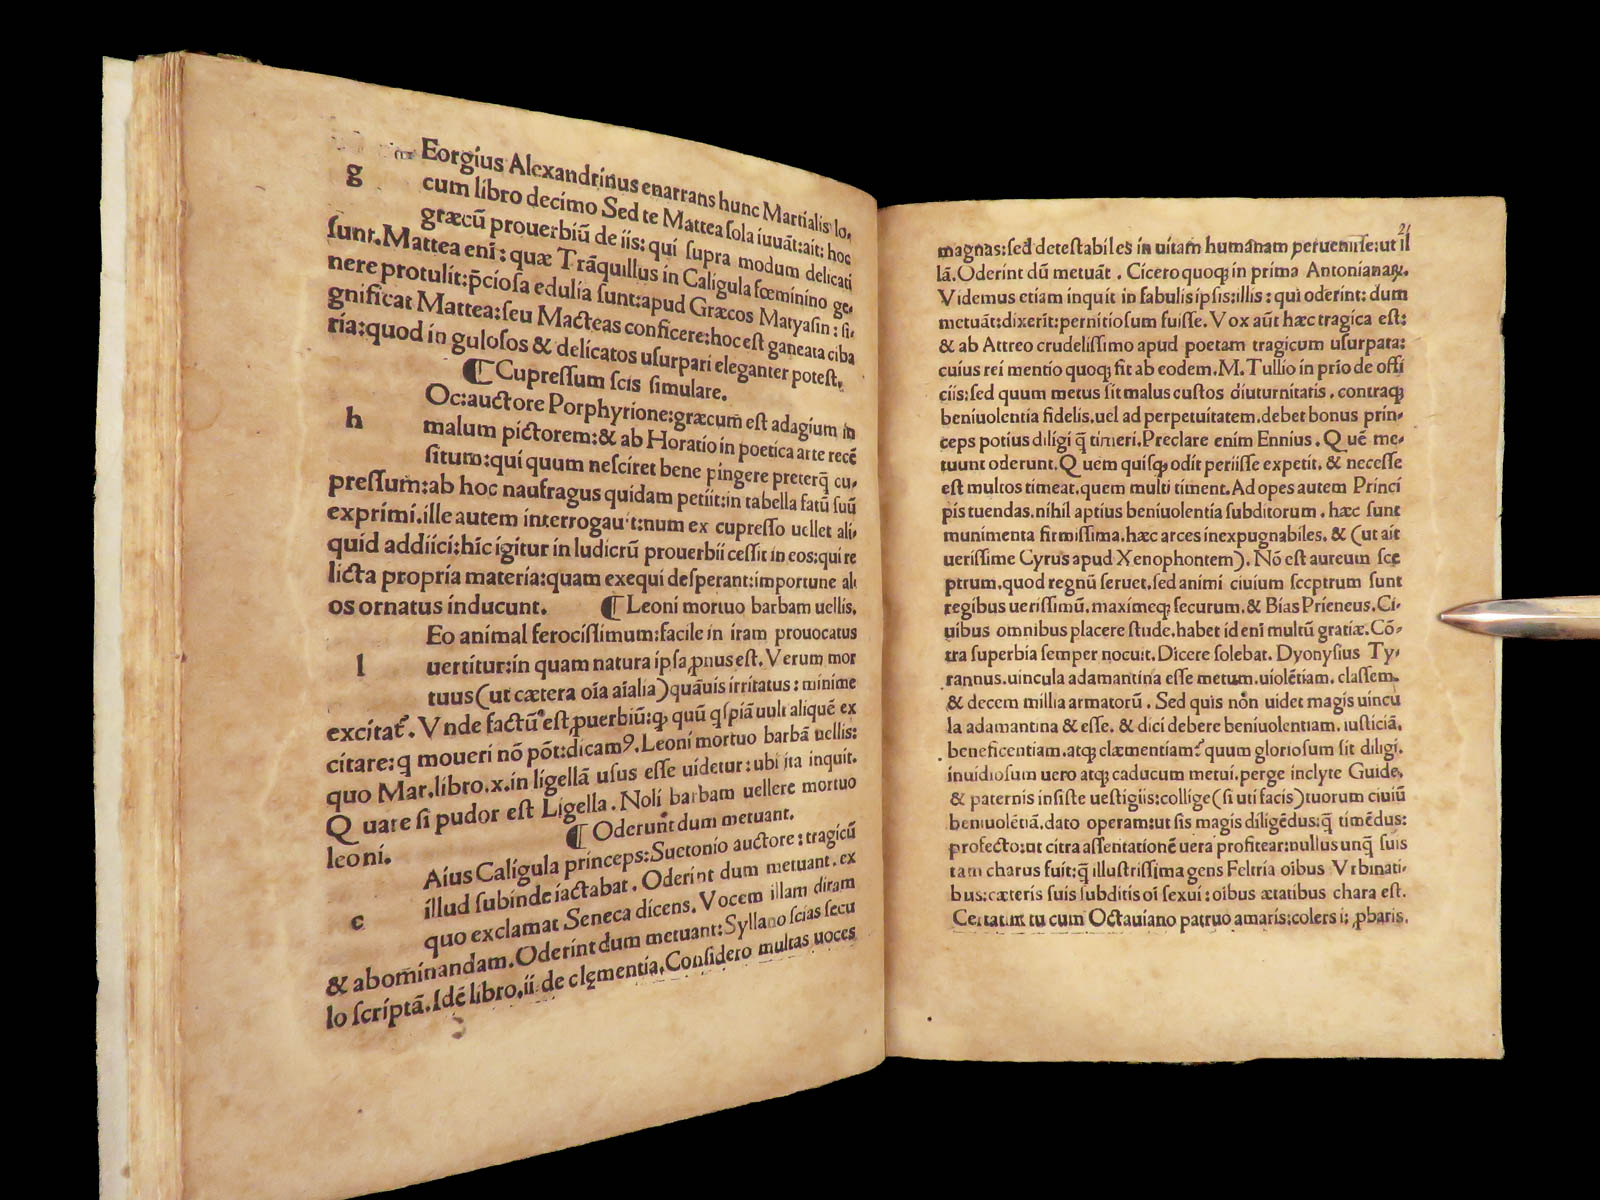 g
Eorgius Alexandrinus enarrans hunc Martialis lo,
cum libro decimo Sed te Mattea ſola iuuāt:ait: hoc
græcū prouerbiū de iis: qui ſupra modum delicati
ſunt. Mattea enī: quæ Trāquillus in Caligula fœminino ge,
nere protulit: p̄cioſa edulia ſunt: apud Græcos Matyaſin: ſi-
gnificat Mattea: ſeu Macteas conficere: hoc eſt ganeata ciba
ria: quod in guloſos & delicatos uſurpari eleganter poteſt.
¶ Cupreſſum ſcis ſimulare.
h
Oc: auctore Porphyrione: græcum eſt adagium in
malum pictorem: & ab Horatio in poetica arte recē
ſitum: qui quum neſciret bene pingere preterq̄ cu,
preſſum: ab hoc naufragus quidam petiit: in tabella fatū ſuū
exprimi. ille autem interrogauit: num ex cupreſſo uellet ali,
quid addiici: hīc igitur in ludicrū prouerbii ceſſit in eos: qui re
licta propria materia: quam exequi deſperant: importune ali
os ornatus inducunt. ¶ Leoni mortuo barbam uellis.
l
Eo animal ferociſſimum: facile in iram prouocatus
uertitur: in quam natura ipſa ꝓnus eſt. Verum mor
tuus (ut cætera oīa aīalia) quāuis irritatus: minime
excitat᷑. Vnde factū eſt ꝓuerbiū: ꝙ quū qſpiā uult aliquē ex
citare: q moueri nō pōt: dicamꝰ. Leoni mortuo barbā uellis:
quo Mar. libro. x. in ligellā uſus eſſe uidetur: ubi ita inquit.
Q uare ſi pudor eſt Ligella. Noli barbam uellere mortuo
leoni. ¶ Oderunt dum metuant.
c
Aius Caligula princeps: Suetonio auctore: tragicū
illud ſubinde iactabat. Oderint dum metuant. ex
quo exclamat Seneca dicens. Vocem illam diram
& abominandam. Oderint dum metuant: Syllano ſcias ſecu
lo ſcriptā. Idē libro. ii. de clęmentia. Conſidero multas uoces
21
magnas: ſed deteſtabiles in uitam humanam perueniſſe: ut il
lā. Oderint dū metuāt. Cicero quoq; in prima Antonianaꝝ.
Videmus etiam inquit in fabulis ipſis: illis: qui oderint: dum
metuāt: dixerīt: pernitioſum fuiſſe. Vox aūt hæc tragica eſt:
& ab Attreo crudeliſſimo apud poetam tragicum uſurpata:
cuius rei mentio quoq; fit ab eodem. M. Tullio in prīo de offi
ciis: ſed quum metus ſit malus cuſtos diuturnitatis. contraq;
beniuolentia fidelis. uel ad perpetuitatem. debet bonus prin-
ceps potius diligi q̄ timeri. Preclare enim Ennius. Q uē me-
tuunt oderunt. Q uem quiſq; odit periiſſe expetit. & neceſſe
eſt multos timeat. quem multi timent. Ad opes autem Princi
pis tuendas. nihil aptius beniuolentia ſubditorum. hæc ſunt
munimenta firmiſſima. hæc arces inexpugnabiles. & (ut ait
ueriſſime Cyrus apud Xenophontem). Nō eſt aureum ſce
ptrum. quod regnū ſeruet. ſed animi ciuium ſceptrum ſunt
regibus ueriſſimū. maximeq; ſecurum. & Bias Prieneus. Ci-
uibus omnibus placere ſtude. habet id enī multū gratiæ. Cō-
tra ſuperbia ſemper nocuit. Dicere ſolebat. Dyonyſius Ty-
rannus. uincula adamantina eſſe metum. uiolētiam. claſſem.
& decem millia armatorū. Sed quis non uidet magis uincu
la adamantina & eſſe. & dici debere beniuolentiam. iuſticiā.
beneficentiam. atq; clæmentiam? quum glorioſum ſit diligi.
inuidioſum uero atq; caducum metui. perge inclyte Guide.
& paternis inſiſte ueſtigiis: collige (ſi uti facis) tuorum ciuiū
beniuolētiā. dato operam: ut ſis magis diligēdus: q̄ timēdus:
profecto: ut citra aſſentationē uera profitear: nullus unq̄ ſuis
tam charus fuit: q̄ illuſtriſſima gens Feltria oībus Vrbinati-
bus: cæteris ſuis ſubditis oī ſexui: oībus ætatibus chara eſt.
Certatim tu cum Octauiano patruo amaris: coleris: ꝓbaris.